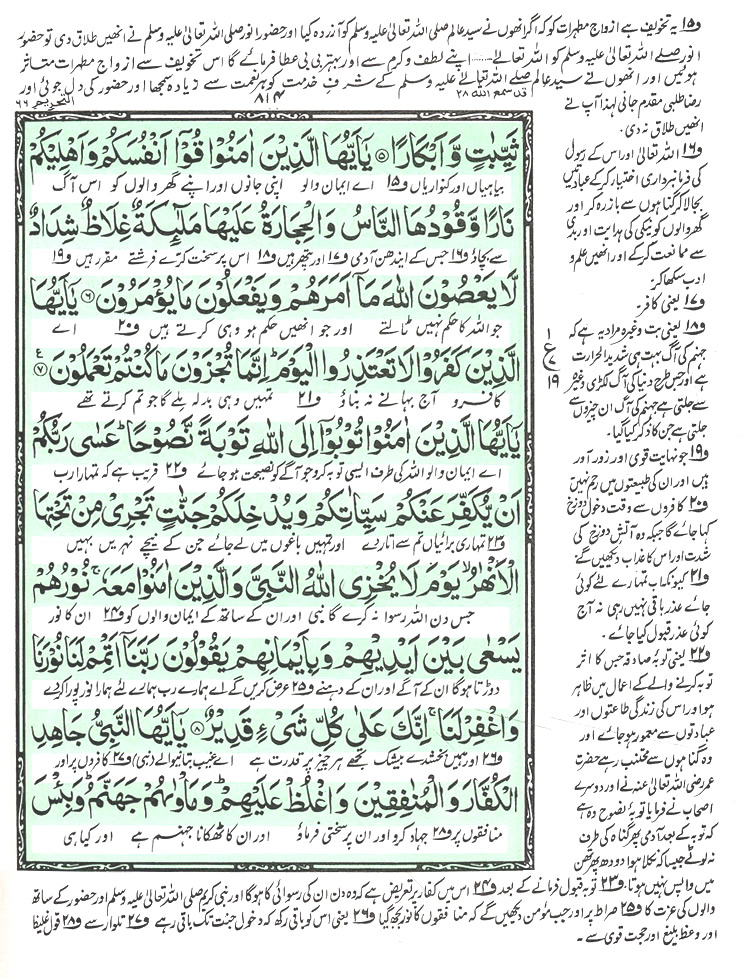 ف۱۵ یہ تخویف ہے ازواج مطہرات کو کہ اگر انھوں نے سید عالم صلی اللہ تعالیٰ علیہ وسلم کو آزردہ کیا اور حضور انور صلی اللہ تعالیٰ علیہ وسلم نے انھیں طلاق دی تو حضور
انور صلے اللہ تعالیٰ علیہ وسلم کو اللہ تعالےٰ اپنے لطف و کرم سے اور بہتر بی بی عطا فرمائے گا اس تخویف سے ازواج مطہرات متاثر
ہوئیں اور انھوں نے سید عالم صلے اللہ تعالےٰ علیہ وسلم کے شرف خدمت کو ہر نعمت سے زیادہ سمجھا اور حضور کی دل جوئی اور
قد سمع اللہ ۲۸
۸۱۴
التحریم ۶۶
رضا طلبی مقدم جانی لہذا آپ نے
انھیں طلاق نہ دی۔
ثَيِّبٰتٍ وَّاَبْكَارًا ۵ يٰۤاَيُّهَا الَّذِيْنَ اٰمَنُوْا قُوْۤا اَنْفُسَكُمْ وَاَهْلِيْكُمْ
بیاہیاں اور کنواریاں ف۱۵ اے ایمان والو اپنی جانوں اور اپنے گھر والوں کو اس آگ
نَارًا وَّقُوْدُهَا النَّاسُ وَالْحِجَارَةُ عَلَيْهَا مَلٰٓئِكَةٌ غِلَاظٌ شِدَادٌ
سے بچاؤ ف۱۶ جس کے ایندھن آدمی ف۱۷ اور پتھر ہیں ف۱۸ اس پر سخت کرّے فرشتے مقرر ہیں ف۱۹
لَّا يَعْصُوْنَ اللّٰهَ مَاۤ اَمَرَهُمْ وَيَفْعَلُوْنَ مَا يُؤْمَرُوْنَ ۶ يٰۤاَيُّهَا
جو اللہ کا حکم نہیں ٹالتے اور جو انھیں حکم ہو وہی کرتے ہیں ف۲۰ اے
الَّذِيْنَ كَفَرُوْا لَا تَعْتَذِرُوا الْيَوْمَ ؕ اِنَّمَا تُجْزَوْنَ مَا كُنْتُمْ تَعْمَلُوْنَ ۷ ع
کافرو آج بہانے نہ بناؤ ف۲۱ تمہیں وہی بدلہ ملے گا جو تم کرتے تھے
يٰۤاَيُّهَا الَّذِيْنَ اٰمَنُوْا تُوْبُوْۤا اِلَى اللّٰهِ تَوْبَةً نَّصُوْحًا ؕ عَسٰى رَبُّكُمْ
اے ایمان والو اللہ کی طرف ایسی توبہ کرو جو آگے کو نصیحت ہو جائے ف۲۲ قریب ہے کہ تمہارا رب
اَنْ يُّكَفِّرَ عَنْكُمْ سَيِّاٰتِكُمْ وَيُدْخِلَكُمْ جَنّٰتٍ تَجْرِيْ مِنْ تَحْتِهَا
ف۲۳ تمہاری برائیاں تم سے اتار دے اور تمہیں باغوں میں لے جائے جن کے نیچے نہریں بہیں
الْاَنْهٰرُ ۙ يَوْمَ لَا يُخْزِى اللّٰهُ النَّبِيَّ وَالَّذِيْنَ اٰمَنُوْا مَعَهٗ ۚ نُوْرُهُمْ
جس دن اللہ رسوا نہ کرے گا نبی اور ان کے ساتھ کے ایمان والوں کو ف۲۴ ان کا نور
يَسْعٰى بَيْنَ اَيْدِيْهِمْ وَبِاَيْمَانِهِمْ يَقُوْلُوْنَ رَبَّنَاۤ اَتْمِمْ لَنَا نُوْرَنَا
دوڑتا ہوگا ان کے آگے اور ان کے دہنے ف۲۵ عرض کریں گے اے ہمارے رب ہمارے لئے ہمارا نور پورا کردے
وَاغْفِرْ لَنَا ۚ اِنَّكَ عَلٰى كُلِّ شَيْءٍ قَدِيْرٌ ۸ يٰۤاَيُّهَا النَّبِيُّ جَاهِدِ
ف۲۶ اور ہمیں بخشدے بیشک تجھے ہر چیز پر قدرت ہے اے غیب بتانیوالے (نبی) ف۲۷ کافروں پر اور
الْكُفَّارَ وَالْمُنٰفِقِيْنَ وَاغْلُظْ عَلَيْهِمْ ؕ وَمَاْوٰىهُمْ جَهَنَّمُ ؕ وَبِئْسَ
منافقوں پر ف۲۸ جہاد کرو اور ان پر سختی فرماؤ اور ان کا ٹھکانا جہنم ہے اور کیا ہی
۱
ع
۷
۱۹
ف۱۶ اللہ تعالیٰ اور اس کے رسول
کی فرمانبرداری اختیار کرکے عبادتیں
بجالاکر گناہوں سے باز رہ کر اور
گھر والوں کو نیکی کی ہدایت اور بدی
سے ممانعت کرکے اور انھیں علم و
ادب سکھا کر۔
ف۱۷ یعنی کافر۔
ف۱۸ یعنی بت وغیرہ مراد یہ ہے کہ
جہنم کی آگ بہت ہی شدید الحرارت
ہے اور جس طرح دنیا کی آگ لکڑی وغیرہ
سے جلتی ہے جہنم کی آگ ان چیزوں سے
جلتی ہے جن کا ذکر کیا گیا۔
ف۱۹ جو نہایت قوی اور زور آور
ہیں اور ان کی طبیعتوں میں رحم نہیں
ف۲۰ کافروں سے وقت دخول دوزخ
کہا جائے گا جبکہ وہ آتش دوزخ کی
شدت اور اس کا عذاب دیکھیں گے
ف۲۱ کیونکہ اب تمہارے لئے کوئی
جائے عذر باقی نہیں رہی نہ آج
کوئی عذر قبول کیا جائے۔
ف۲۲ یعنی توبۂ صادقہ جس کا اثر
توبہ کرنے والے کے اعمال میں ظاہر
ہو اور اس کی زندگی طاعتوں اور
عبادتوں سے معمور ہو جائے اور
وہ گناہوں سے مجتنب رہے حضرت
عمر رضی اللہ تعالیٰ عنہ نے اور دوسرے
اصحاب نے فرمایا توبۂ نصوح وہ ہے
کہ توبہ کے بعد آدمی پھر گناہ کی طرف
نہ لوٹے جیسا کہ نکلا ہوا دودھ پھر تھن
میں واپس نہیں ہوتا۔ ف۲۳ توبہ قبول فرمانے کے بعد ف۲۴ اس میں کفار پر تعریض ہے کہ وہ دن ان کی رسوائی کا ہوگا اور نبی کریم صلی اللہ تعالیٰ علیہ وسلم اور حضور کے ساتھ
والوں کی عزت کا ف۲۵ صراط پر اور جب مؤمن دیکھیں گے کہ منافقوں کا نور بجھ گیا ف۲۶ یعنی اس کو باقی رکھ کہ دخول جنت تک باقی رہے ف۲۷ تلوار سے ف۲۸ قول غلیظ
اور وعظ بلیغ اور حجت قوی سے۔